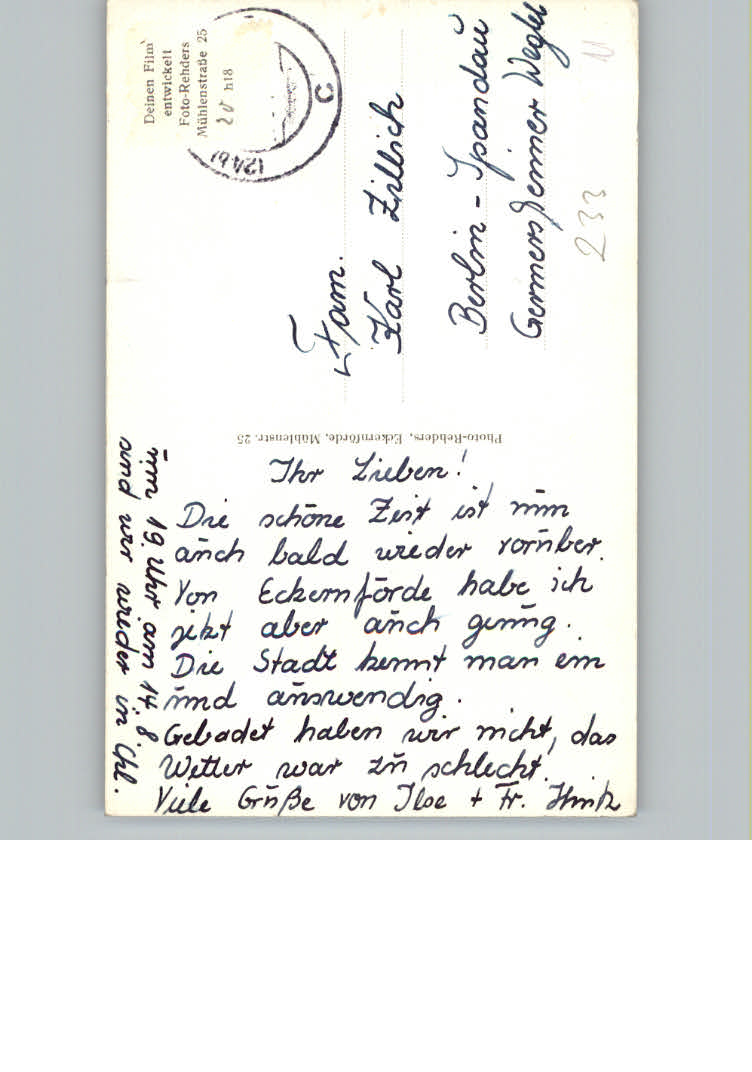 Deinen Film
entwickelt
Foto-Rehders
Mühlenstraße 25
h18
(24b)
C
Fam.
Karl Zillich
Berlin - Spandau
Germersheimer Weg
11
233
Photo-Rehders, Eckernförde, Mühlenstr. 25
Ihr Lieben!
Die schöne Zeit ist nun
auch bald wieder vorüber.
Von Eckernförde habe ich
jetzt aber auch genug.
Die Stadt kennt man ein
und auswendig.
Gebadet haben wir nicht, das
Wetter war zu schlecht.
Viele Grüße von Ilse + Fr. Hintz
um 19 Uhr am 14. 8.
sind wir wieder in Chl.